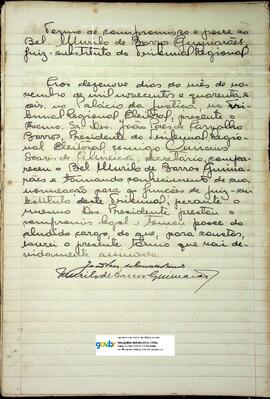 Termo de compromisso e posse ao
Bel Murilo de Barros Guimarães,
juiz-substituto do Tribunal Regional
Aos dezenove dias do mês de no-
vembro de mil novecentos e quarenta e
seis, no Palácio da Justiça, no Tri-
bunal Regional Eleitoral, presente o
Exmo. Snr. Des. João Paes de Carvalho
Barros, Presidente do Tribunal Regio-
nal Eleitoral, comigo
Soares de Almeida, secretário, compa-
receu o Bel Murilo de Barros Guima-
rães e tomando conhecimento de sua
nomeação para as funções de juiz-su-
bstituto deste Tribunal, perante o
mesmo Des. Presidente prestou o
compromisso legal e tomou posse do
aludido cargo, do que, para constar,
lavrei o presente termo que vai de-
vidamente assinado.
Murilo de Barros Guimarães